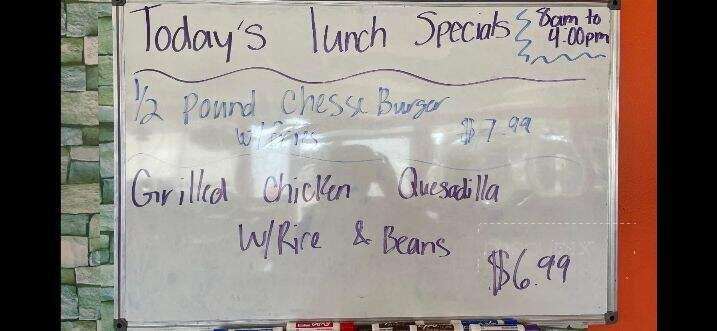 Today's lunch Specials
8am to
4:00pm
1/2 Pound Chesse Burger
W/Fries $7.99
Grilled Chicken Quesadilla
W/Rice & Beans
$6.99